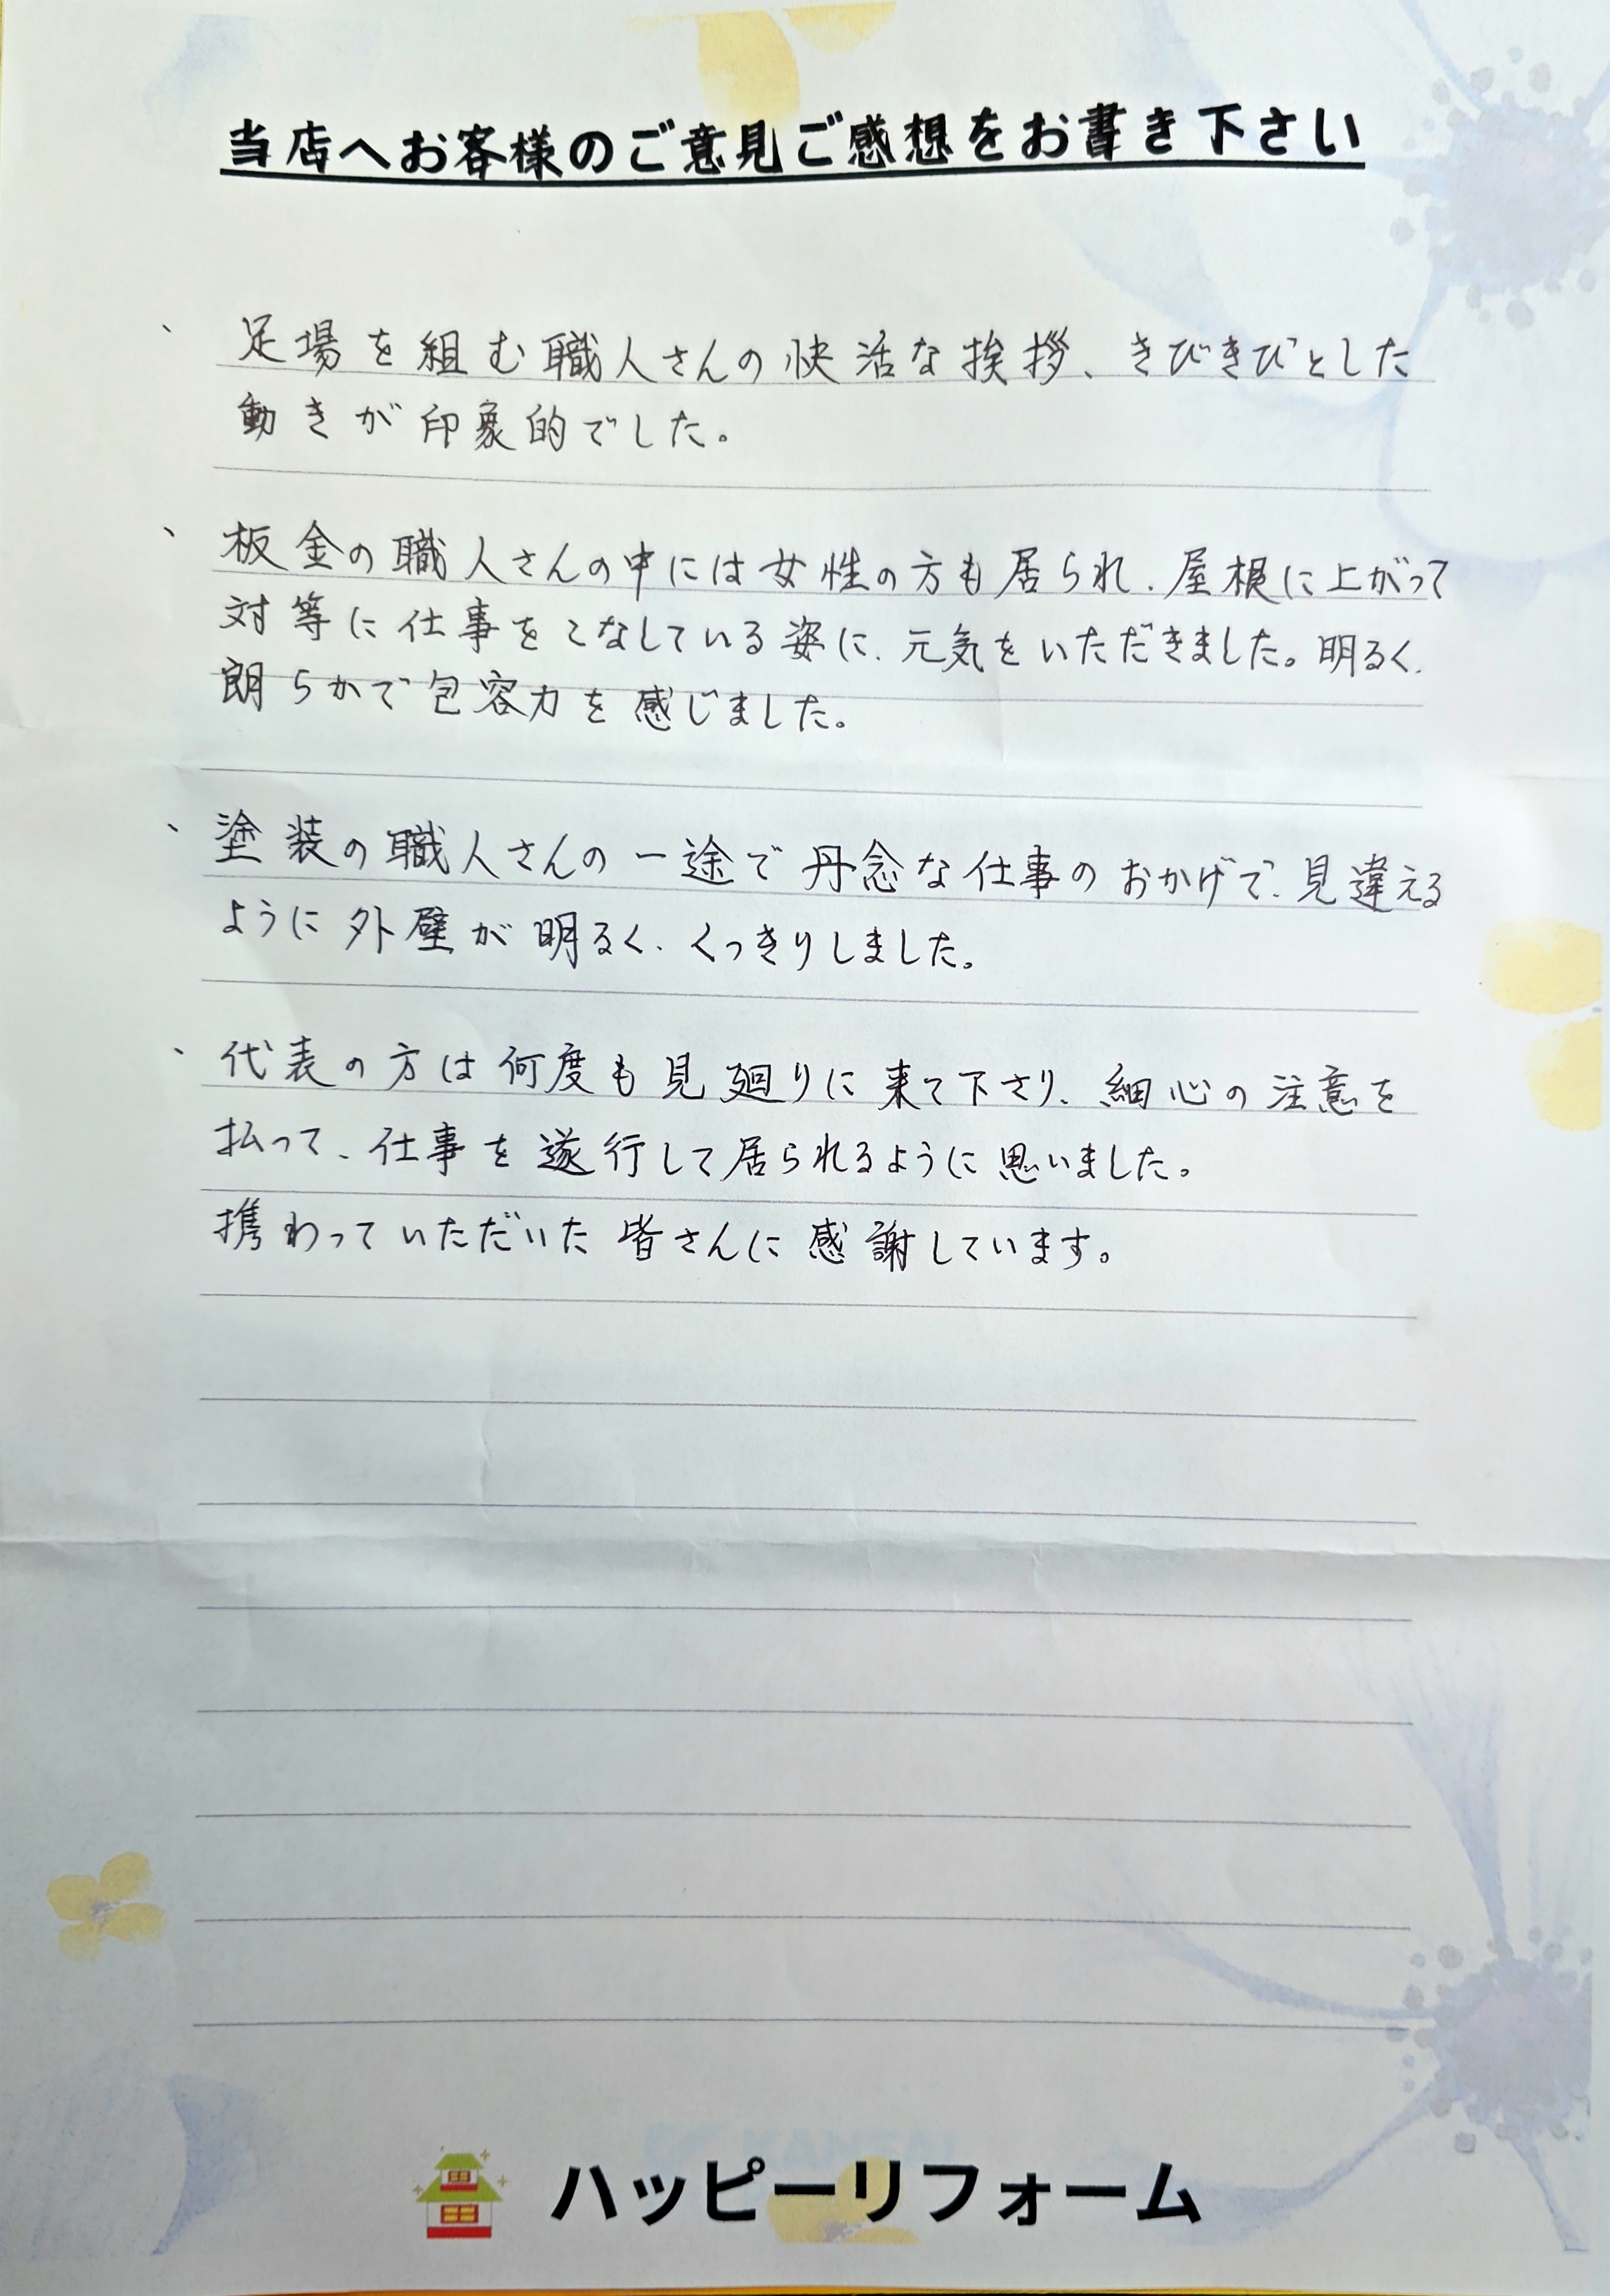 当店へお客様のご意見ご感想をお書き下さい
、足場を組む職人さんの快活な挨拶、きびきびとした
動きが印象的でした。
、板金の職人さんの中には女性の方も居られ、屋根に上がって
対等に仕事をこなしている姿に、元気をいただきました。明るく、
朗らかで包容力を感じました。
、塗装の職人さんの一途で丹念な仕事のおかげで、見違える
ように外壁が明るく、くっきりしました。
、代表の方は何度も見廻りに来て下さり、細心の注意を
払って、仕事を遂行して居られるように思いました。
携わっていただいた皆さんに感謝しています。
KANSAI
ハッピーリフォーム